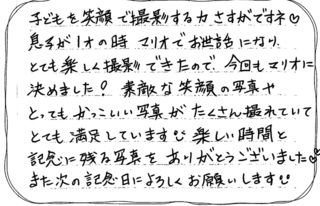 子どもを笑顔で撮影する力さすがです♡
息子が1才の時 マリオでお世話になり、
とても楽しく撮影できたので、今回もマリオに
決めました! 素敵な笑顔の写真や
とってもかっこいい写真がたくさん撮れていて
とても満足しています 楽しい時間と
記念に残る写真をありがとうございました♡
また次の記念日によろしくお願いします